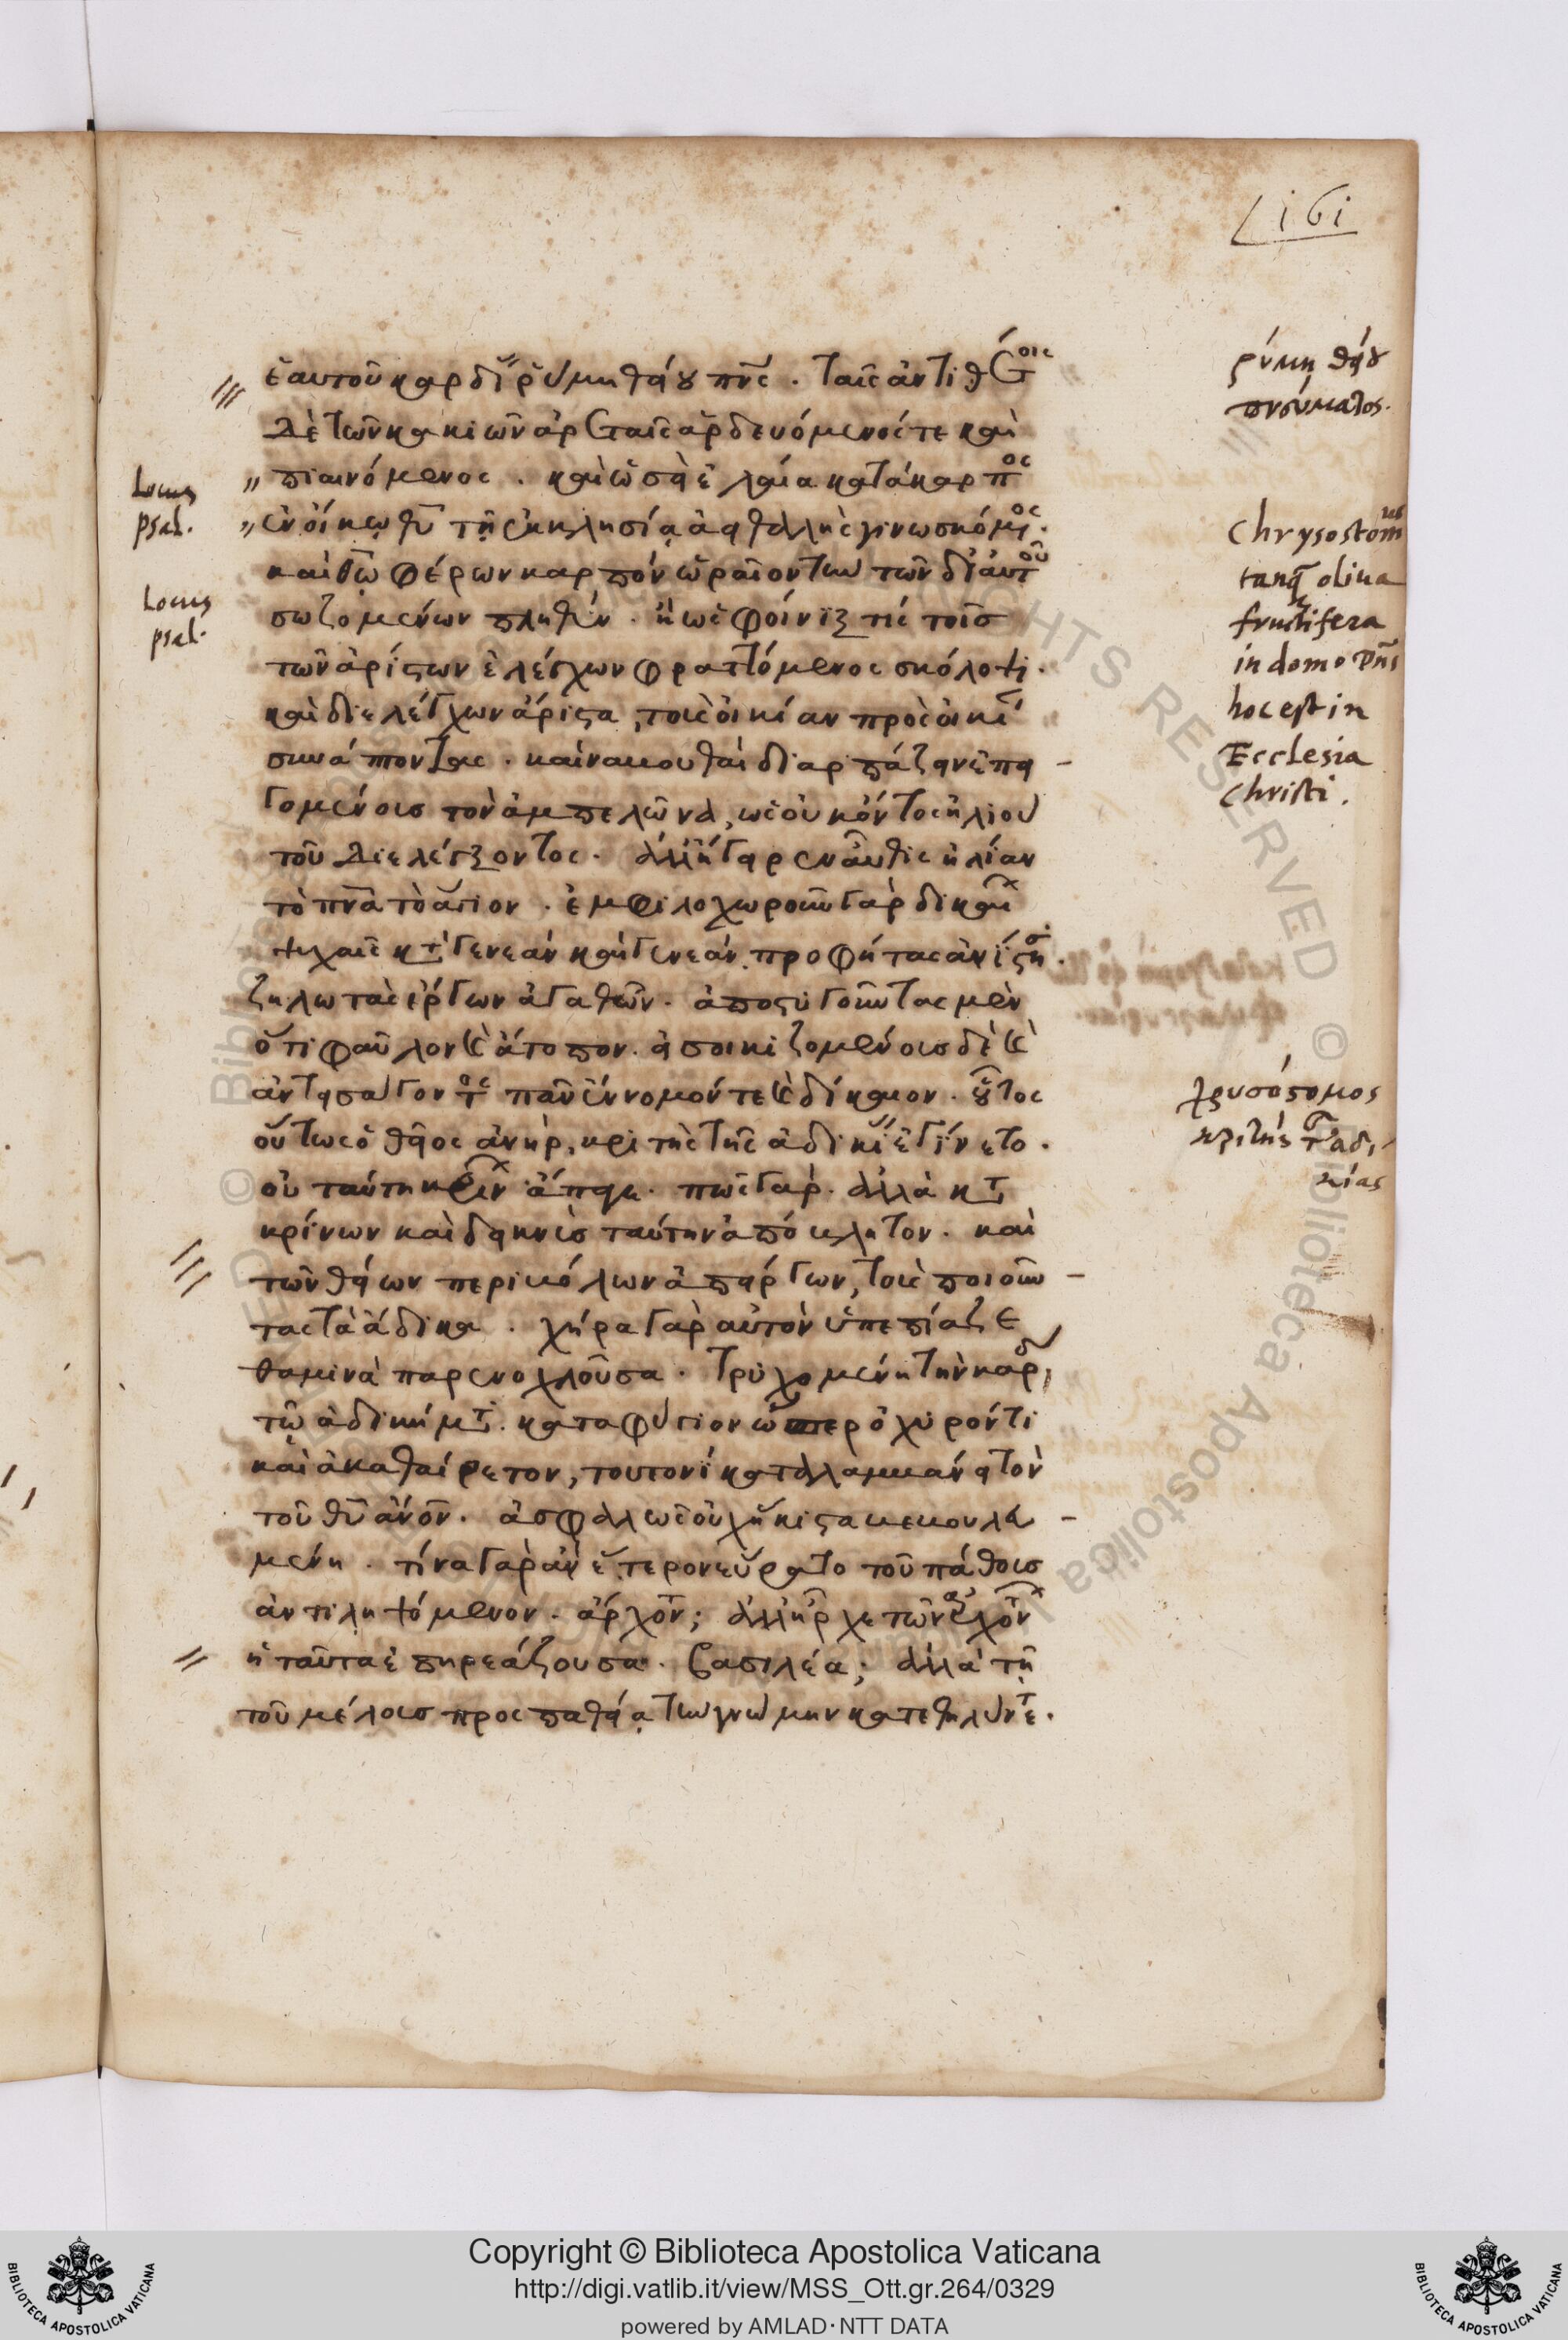 161
ἑαυτοῦ καρδί ῥύμη θείου πνς. ταῖς ἀντιθέτοις
δὲ τῶν κακιῶν ἀρεταῖς ἀρδευόμενός τε καὶ
πιαινόμενος. καὶ ὡσεὶ ἐλαία κατάκαρπος
ἐν οἴκῳ θῦ τῇ ἐκκλησίᾳ ἀειθαλὴς γινωσκόμενος.
καὶ θῶ φέρων καρπὸν ὡραῖον τὴν τῶν δι' αὐτοῦ
σωζομένων πληθύν. ἢ ὡς φοίνιξ τις τοῖς
τῶν ἀρίστων ἐλέγχων φραττόμενος σκόλοψι.
καὶ διελέγχων ἄριστα, τοὺς οἰκίαν πρὸς οἰκί
συνάπτοντας. καὶ διαρπάζειν ἐπει
γομένους τὸν ἀμπελῶνα, ὡς οὐκ ὄντος ἡλίου
τοῦ διελέγξοντος. ἀλλ' ἦ γὰρ ἐν αὐθις ἠλίαν
τὸ πνα τὸ ἅγιον. ἐμφιλοχωροῦν γὰρ δικαί
ψυχαῖς κατὰ γενεὰν καὶ γενεὰν, προφήτας ἀνίστησι.
ζηλωτὰς ἔργων ἀγαθῶν. ἀποστυγοῦντας μὲν
ὅτι φαῦλον καὶ ἄτοπον. εἰσοικιζομένους δὲ καὶ
πᾶν ἔννομόν τε καὶ δίκαιον. οὗτος
οὕτως ὁ θεῖος ἀνὴρ, κριτὴς τῆς ἀδικί ἐγίνετο.
οὐ ταύτην ἄπαγε. πῶς γάρ. ἀλλὰ κατα
κρίνων καὶ δεικνὺς ταύτην ἀπόκλητον. καὶ
τῶν θείων περιβόλων ἀπείργων, τοὺς ποιοῦν
τας τὰ ἄδικα. χήρα γὰρ αὐτὸν ὑπεπίαζε
θαμινὰ παρενοχλοῦσα. τρυχομένη τὴν καρδί
τῷ ἀδικήματι. καταφύγιον ὥσπερ ὀχυρόν τι
καὶ ἀκαθαίρετον, τουτονὶ καταλαμβάνει τὸν
τοῦ θῦ ἄνον. ἀσφαλῶς οὐχ ἥκιστα βεβουλευ
μένη. τίνα γὰρ ἂν ἕτερον εὕρατο τοῦ πάθους
ἀντιληψόμενον. ἄρχον; ἀλλ' ἦρχε τῶν ἀρχόν
ἡ ταῦτα ἐπηρεάζουσα. βασιλέα; ἀλλὰ τῇ
τοῦ μέλους προσπαθείᾳ τὴν γνώμην κατεθηλύνετο.
Locus
psal.
Locus
psal.
ῥύμη θείου
πνεύματος.
Chrysostomus
tanq̃ oliua
fructifera
in domo Dñi
hoc est in
Ecclesia
Christi.
χρυσόστομος
κριτὴς τῆς ἀδι-
κίας
Copyright © Biblioteca Apostolica Vaticana
http://digi.vatlib.it/view/MSS_Ott.gr.264/0329
powered by AMLAD·NTT DATA
BIBLIOTECA APOSTOLICA VATICANA
BIBLIOTECA APOSTOLICA VATICANA